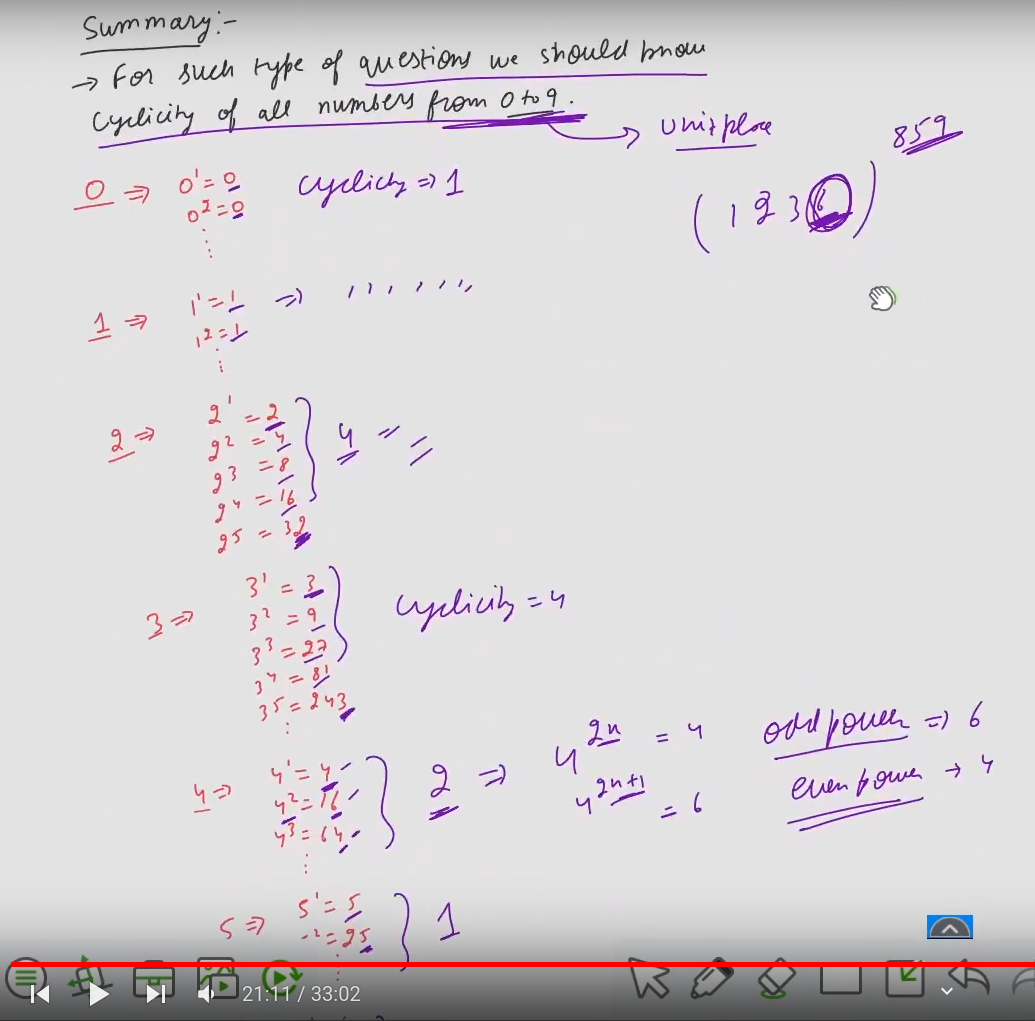 Summary:-
→ For such type of questions we should know
cyclicity of all numbers from 0 to 9.
→ unit place
859
(1236)
0 ⇒ 0¹ = 0 cyclicity ⇒ 1
0² = 0
1 ⇒ 1¹ = 1 ⇒ ,,,,,,,
1² = 1
2 ⇒ 2¹ = 2
2² = 4
2³ = 8
2⁴ = 16
2⁵ = 32
4
3 ⇒ 3¹ = 3
3² = 9
3³ = 27
3⁴ = 81
3⁵ = 243
cyclicity = 4
4 ⇒ 4¹ = 4
4² = 16
4³ = 64
2 ⇒
4²ⁿ = 4
4²ⁿ⁺¹ = 6
odd power ⇒ 6
even power → 4
5 ⇒ 5¹ = 5
² = 25
1
21:11 / 33:02